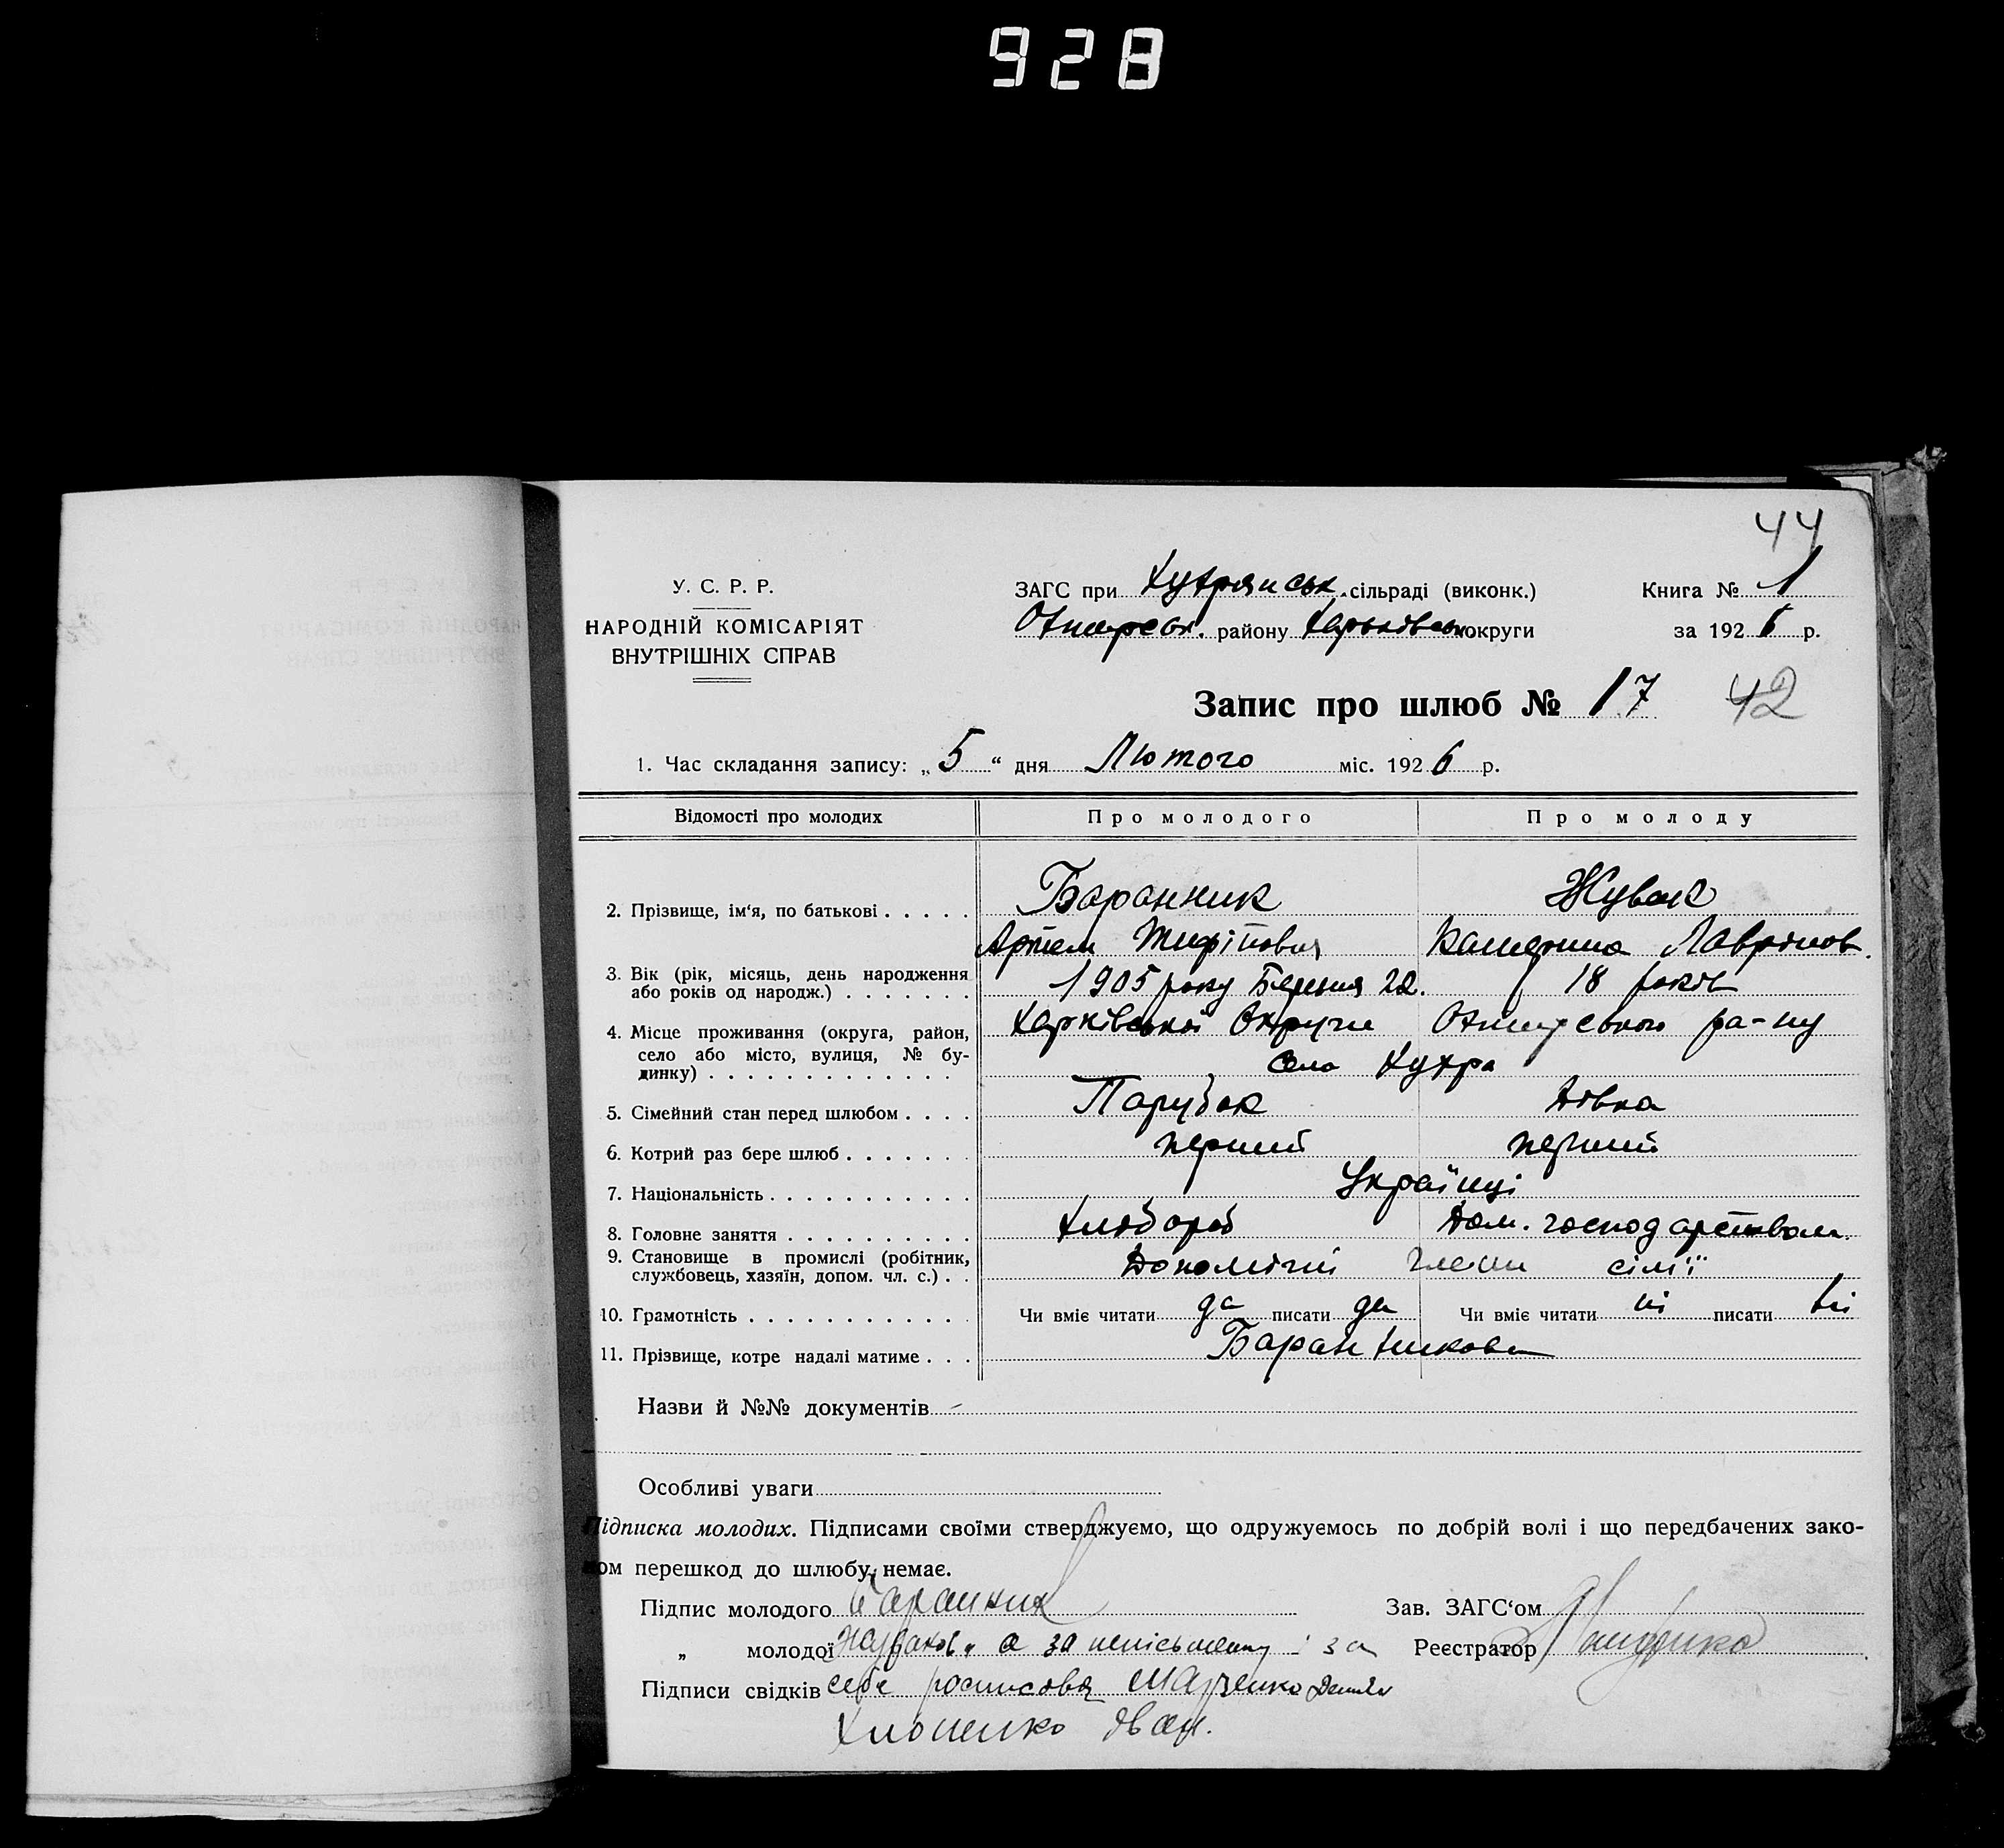 928
44
У. С. Р. Р.
НАРОДНІЙ КОМІСАРІЯТ
ВНУТРІШНІХ СПРАВ
ЗАГС при Кухрянськ. сільраді (виконк.)
Охтирськ. району Харьківськ округи
Книга № 1
за 1926 р.
Запис про шлюб № 17 42
1. Час складання запису: „5“ дня Лютого міс. 1926 р.
Відомості про молодих Про молодого Про молоду
2. Прізвище, ім‘я, по батькові . . . . . Баранник Жувак
Артем Катерина Лаврінов.
3. Вік (рік, місяць, день народження
або років од народж.) . . . . . . . 1905 року Березня 22. 18 років
4. Місце проживання (округа, район,
село або місто, вулиця, № бу-
динку) . . . . . . . . . . . . . Харківської Округи Охтирського ра-ну
село Кухра
5. Сімейний стан перед шлюбом . . . . Парубок Дівка
6. Котрий раз бере шлюб . . . . . . . перший перший
7. Національність . . . . . . . . . . . Українці
8. Головне заняття . . . . . . . . . . Хлібороб Дом. господарством.
9. Становище в промислі (робітник,
службовець, хазяїн, допом. чл. с.) . . Допомічні члени сімʼї
10. Грамотність . . . . . . . . . . . . Чи вміє читати да писати да Чи вміє читати ні писати ні
11. Прізвище, котре надалі матиме . . . Баранникова
Назви й №№ документів –
Особливі уваги
Підписка молодих. Підписами своїми стверджуємо, що одружуемось по добрій волі і що передбачених зако-
ном перешкод до шлюбу немає.
Підпис молодого Баранник
Зав. ЗАГС‘ом
„ молодої а за неписьменну і за
Реєстратор
Підписи свідків себе росписовся Марченко
Хлопенко Іван.